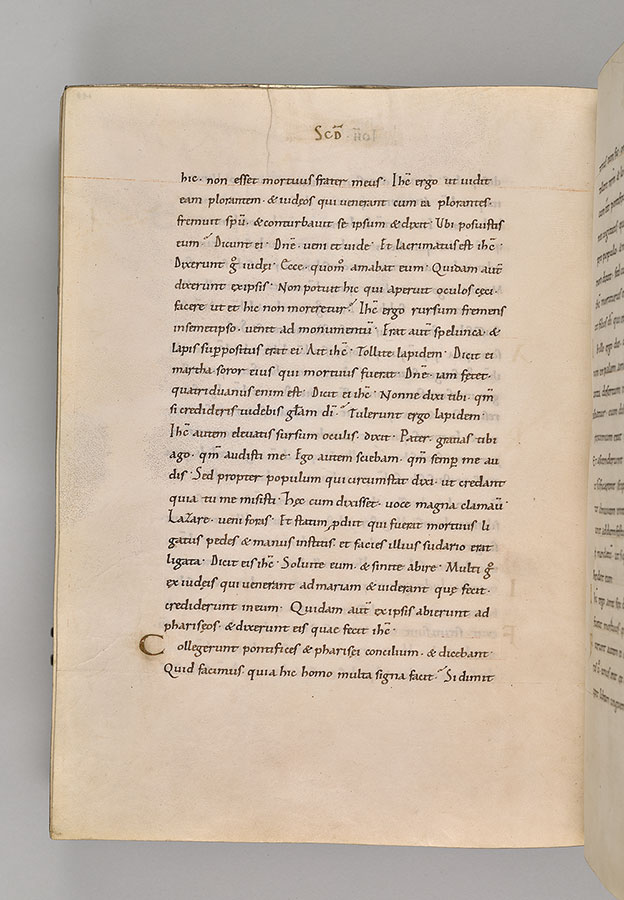 Scd̄
hic. non esset mortuus frater meus. Ihc̄ ergo ut uidit
eam plorantem. & iudęos qui uenerant cum ea plorantes.
fremuit spū. & conturbauit se ipsum & dixit. Ubi posuistis
eum? Dicunt ei. Dnē. ueni et uide. Et lacrimatus est ihc̄.
Dixerunt g̊ iudęi. Ecce. quom̊ amabat eum. Quidam aut̄
dixerunt ex ipsis. Non potuit hic qui aperuit oculos cęci.
facere ut et hic non moreretur? Ihc̄ ergo rursum fremens
in semetipso. uenit ad monumentū. Erat aut̄ spelunca. &
lapis suppositus erat ei. Ait ihc̄. Tollite lapidem. Dicit ei
martha soror eius qui mortuus fuerat. Dnē. iam fętet.
quatriduanus enim est. Dicit ei ihc̄. Nonne dixi tibi. qm̄
si credideris uidebis glām di̅? Tulerunt ergo lapidem.
Ihc̄ autem eleuatis sursum oculis. dixit. Pater. gratias tibi
ago. qm̄ audisti me. Ego autem sciebam. qm̄ semp̲ me au
dis. Sed propter populum qui circumstat dixi. ut credant
quia tu me misisti. Hęc cum dixisset. uoce magna clamauit.
Lazare. ueni foras. Et statim p̲diit qui fuerat mortuus li
gatus pedes & manus institis. et facies illius sudario erat
ligata. Dicit eis ihc̄. Soluite eum. & sinite abire. Multi g̊
ex iudęis qui uenerant ad mariam & uiderant quę fecit.
crediderunt in eum. Quidam aut̄ ex ipsis abierunt ad
pharisęos. & dixerunt eis quae fecit ihc̄.
Collegerunt pontifices & pharisei concilium. & dicebant.
Quid facimus. quia hic homo multa signa facit? Si dimit